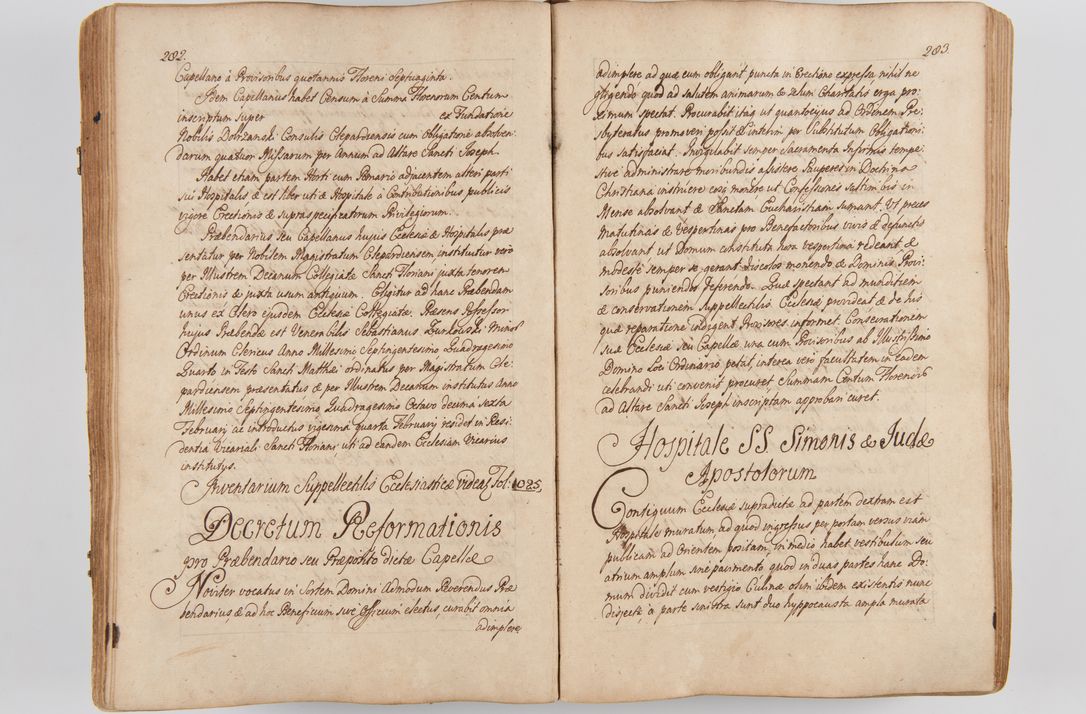 282.
Capellano à Provisoribus quotannis Floreni Septuaginta.
Item Capellanus habet Censum à Summa Florenorum Centum
inscriptum super ex Fundatione
Nobilis Dobrzanski Consulis Clepardiensis cum obligatione absolven-
darum quatuor Missarum per Annum ad Altare Sancti Joseph.
Habet etiam partem Horti cum Pomario adjacentem alteri parti
sui Hospitalis & est liber uti & Hospitale à Contributionibus publicis
vigore Erectionis & supra specificatorum Privilegiorum.
Præbendarius seu Capellanus hujus Ecclesiæ & Hospitalis præ
sentatur per Nobilem Magistratum Clepardiensem instituitur vero
per Illustrem Decanum Collegiatæ Sancti Floriani juxta tenorem
Erectionis & juxta usum antiquum. Eligitur ad hanc Præbendam
unus ex Clero ejusdem Ecclesiæ Collegiatæ. Præsens Possessor
hujus Præbendæ est Venerabilis Sebastianus Minor:
Ordinum Clericus Anno Millesimo Septingentesimo Quadragesimo
Quarto in Festo Sancti Matthæi ordinatus per Magistratum Cle-
pardiensem præsentatus & per Illustrem Decanum institutus Anno
Millesimo Septingentesimo Quadragesimo Octavo decima sexta
Februarij ac introductus vigesima quarta Februarij residet in Resi
dentia Vicariali Sancti Floriani uti ad eandem Ecclesiam Vicarius
institutus.
Inventarium Suppellectilis Ecclesiasticæ videas Fol: 1025,
Decretum Reformationis
pro Præbendario seu Præposito dictæ Capellæ
Noviter vocatus in Sortem Domini Admodum Reverendus Præ
bendarius, & ad hoc Beneficium sive Officium electus, curabit omnia
adimplere
283.
adimplere ad quæ eum obligant puncta in Erectione expressa, nihil ne
gligendo quod ad salutem animarum & zelum Charitatis erga pro-
ximum spectat. Procurabit itaq ut quantocijus ad Ordinem Pre-
sbyteratus promoveri possit & interim per Substitutum Obligationi-
bus satisfaciat. Invigilabit semper Sacramenta Infirmis tempe-
stive administrare moribundis assistere Pauperes in Doctrina
Christiana instruere eosq monere ut Confessiones saltim bis in
Mense absolvant & Sanctam Eucharistiam sumant. Ut preces
Matutinas & Vespertinas pro Benefactoribus vivis & defunctis
absolvant ut Domum constituta hora vespertina redeant &
modeste semper se gerant discolos monendo & Dominis Provi-
soribus puniendos deferendo. Quæ spectant ad munditiem
& conservationem Suppellectilis Ecclesiæ provideat & de his
quæ reparatione indigent Provisores informet. Consecrationem
suæ Ecclesiæ seu Capellæ una cum Provisoribus ab Illustrissimo
Domino Loci Ordinario petat, interea vero facultatem in eadem
celebrandi uti convenit procuret, Summam Centum Florenorum
ad Altare Sancti Joseph inscriptam approbari curet.
Hospitale SS. Simonis & Judæ
Apostolorum
Contiguum Ecclesiæ supradictæ ad partem dextram est
Hospitale muratum ad quod ingressus per portam versus viam
publicam ad Orientem positam, in medio habet vestibulum seu
atrium amplum sine pavimento quod in duas partes hanc Do-
mum dividit cum vestigio Culinæ olim ibidem existentis nunc
disjectæ, à parte sinistra sunt duo hyppocausta ampla murata